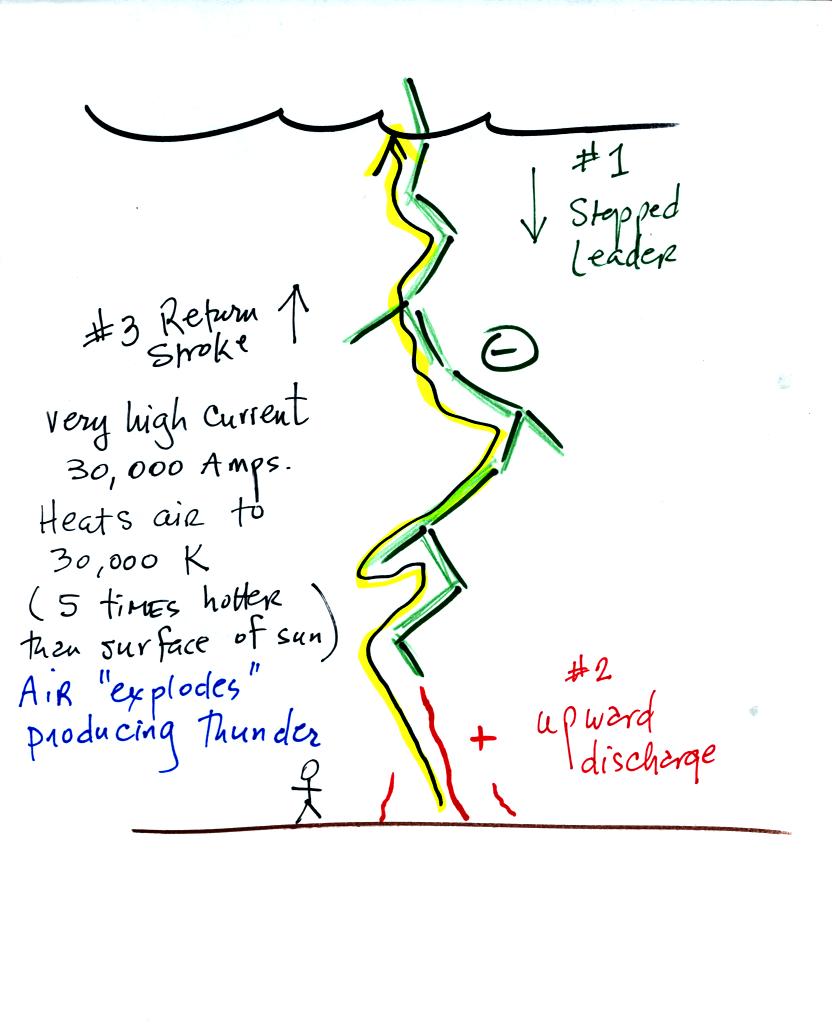 #1
Stepped
Leader
#3 Return
Stroke
−
very high current
30,000 Amps.
Heats air to
30,000 K
(5 times hotter
than surface of sun)
Air "explodes"
producing thunder
#2
+
upward
discharge